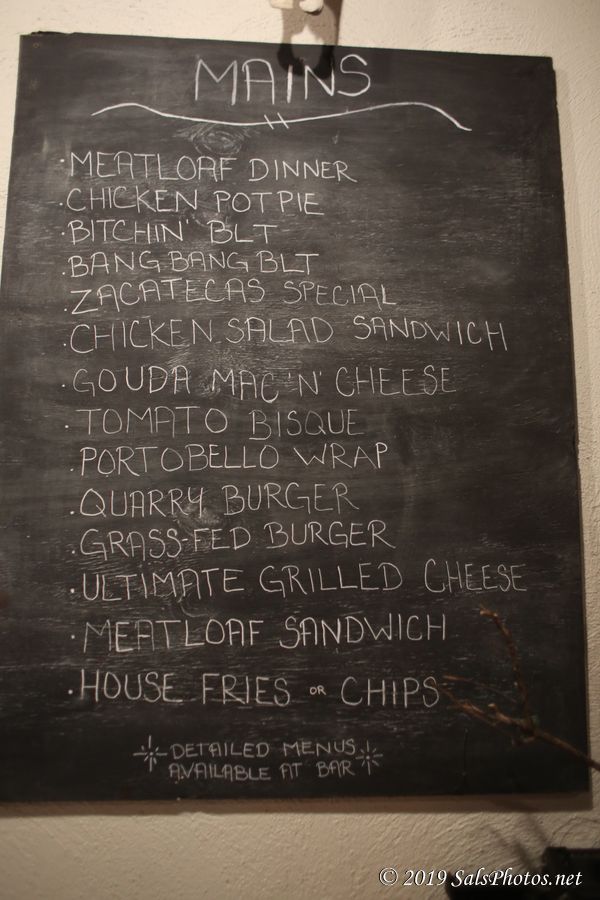 MAINS
· MEATLOAF DINNER
· CHICKEN POTPIE
· BITCHIN' BLT
· BANG BANG BLT
· ZACATECAS SPECIAL
· CHICKEN SALAD SANDWICH
· GOUDA MAC 'N' CHEESE
· TOMATO BISQUE
· PORTOBELLO WRAP
· QUARRY BURGER
· GRASS-FED BURGER
· ULTIMATE GRILLED CHEESE
· MEATLOAF SANDWICH
· HOUSE FRIES OR CHIPS
DETAILED MENUS
AVAILABLE AT BAR
© 2019 SalsPhotos.net